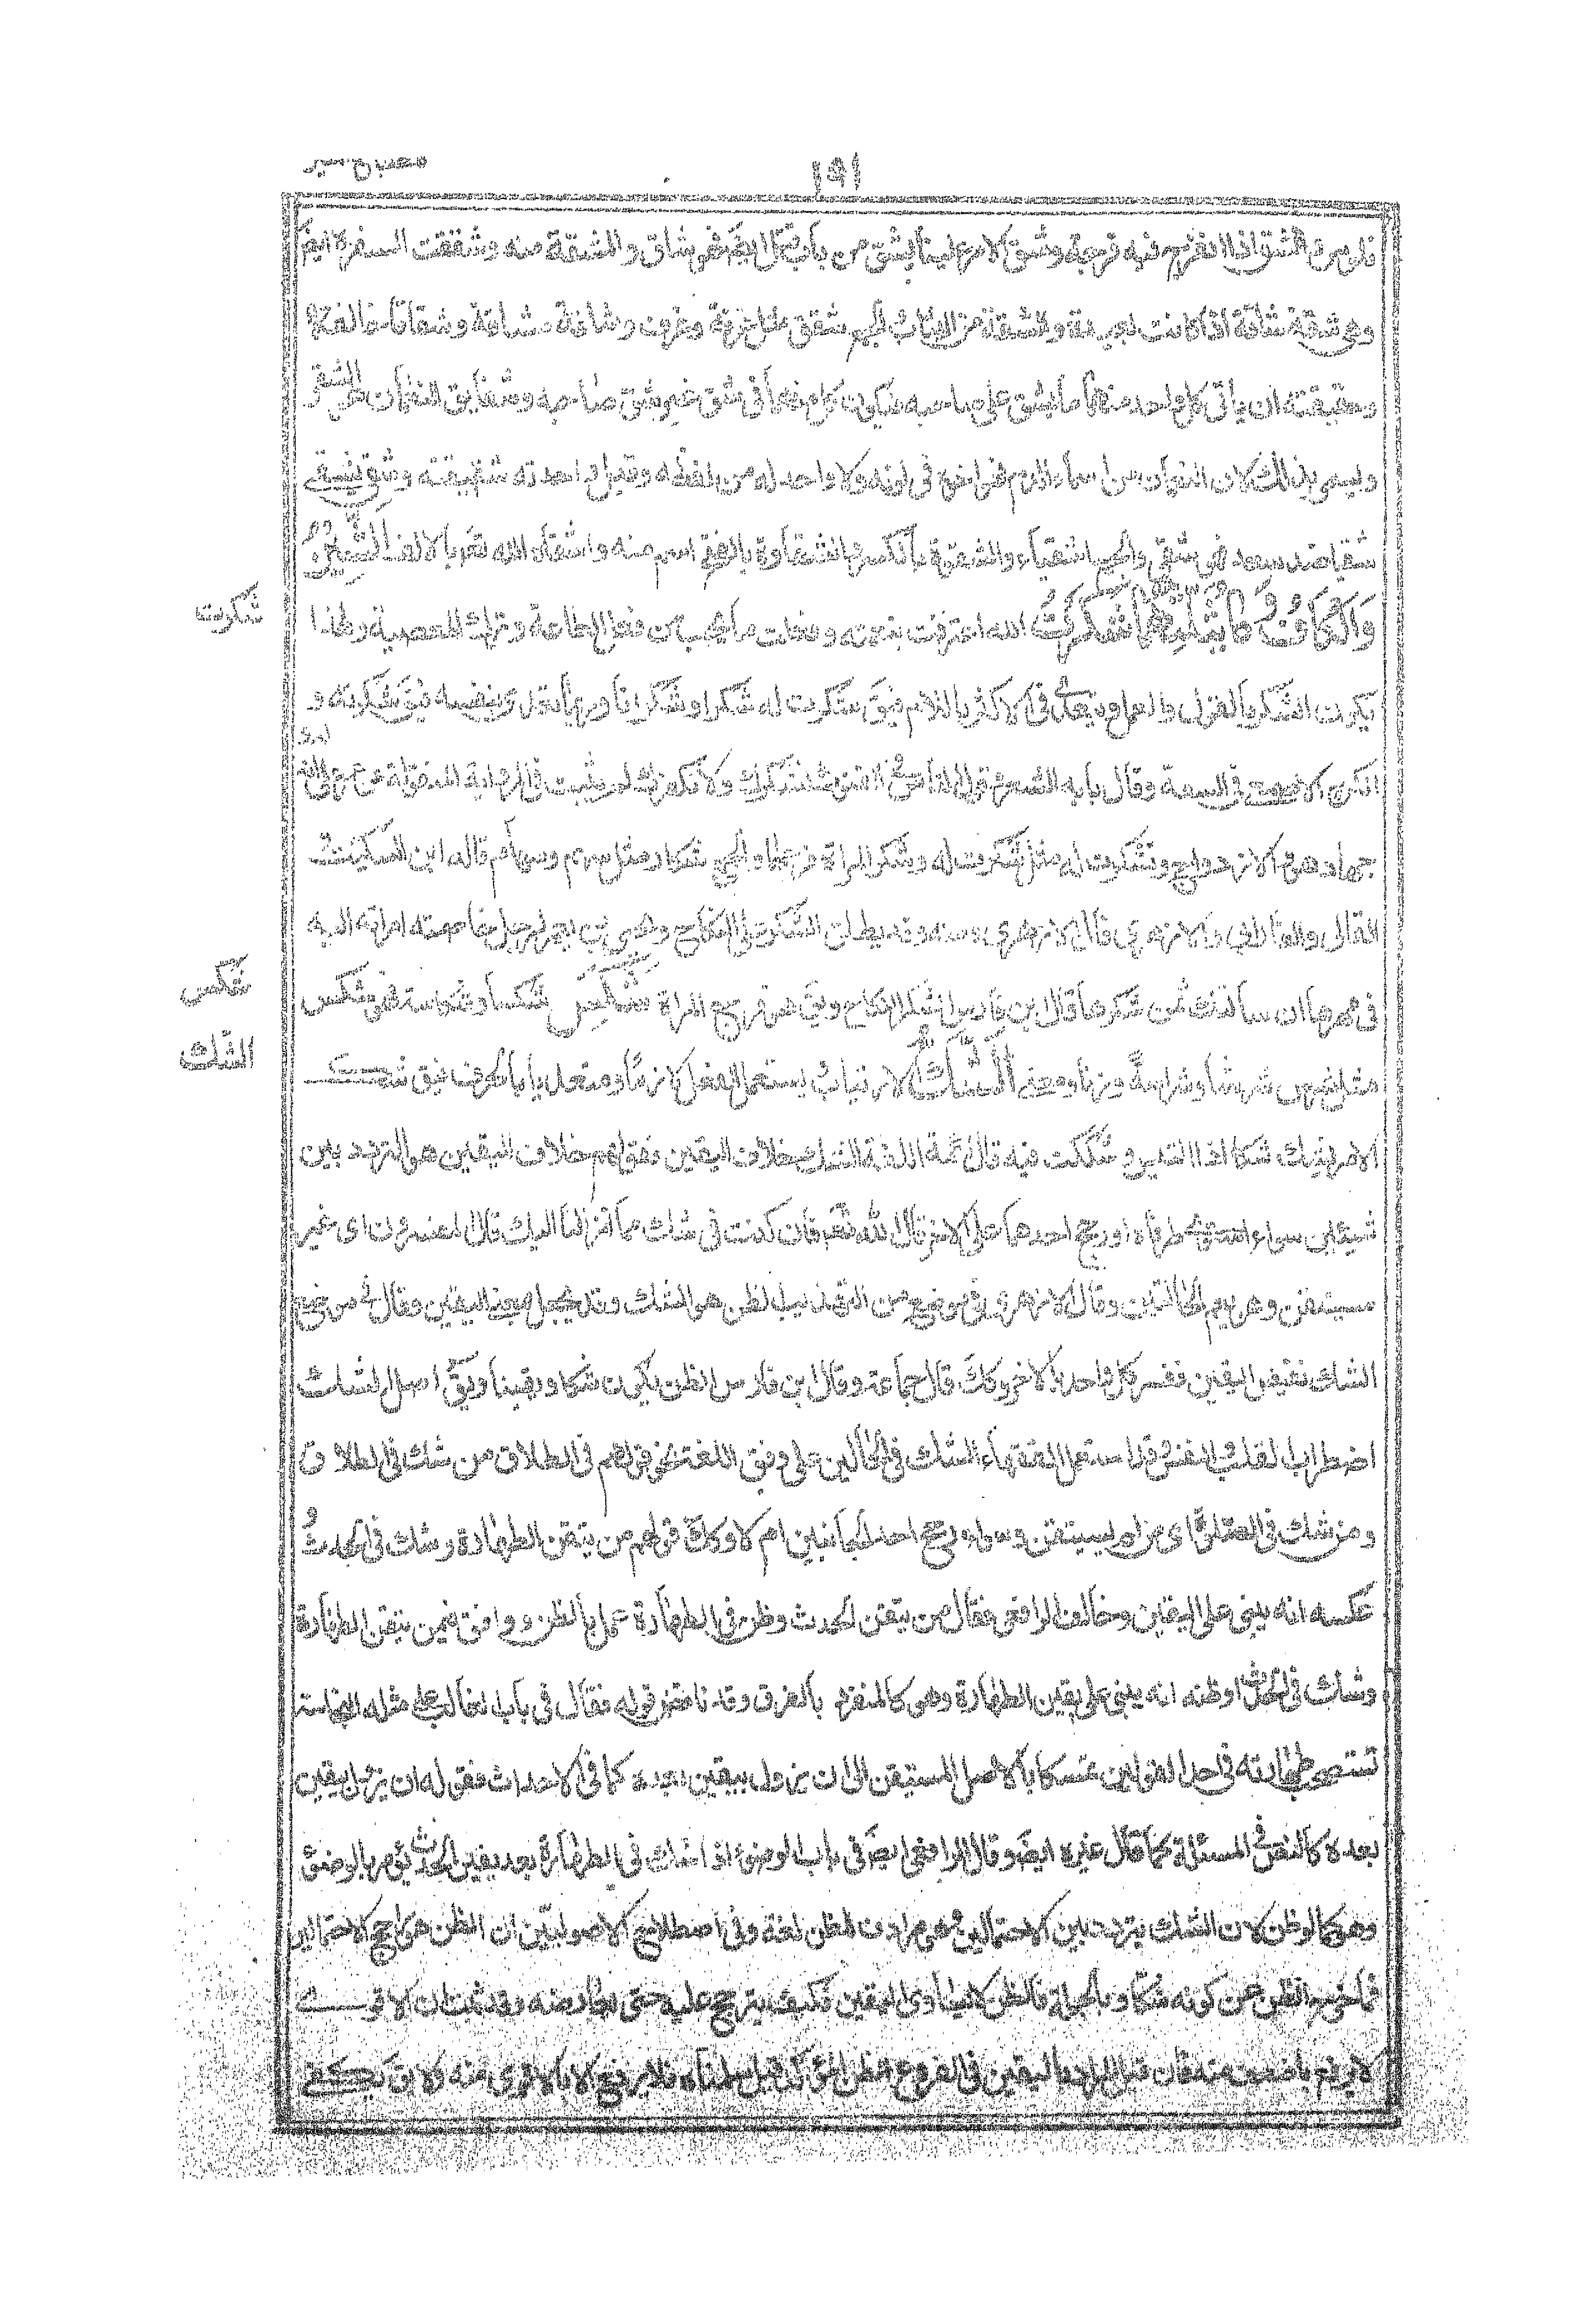 مصباح منير
١٩١
وانشق الشئ اذا انفرج فيه فرجة وشق الامر علينا يشق من باب قتل ايضَ فهو شاق والمشقة منه وشقت السفرة ايضَ
وهى شقة شاقة اذا كانت بعيدة والشقة من الثياب الجمع شقق مثل غرفة وغرف وشاقة مشاقة وشقاقا خالفه
وحقيقته ان ياتى كل واحد منهما ما يشق على صاحبه فيكون كل منهما فى شق غير شق صاحبه وشقايق النعمان هى الشقر
وليس بذلك لان النعمان من اسماء الدم فهو اخوه فى لونه ولا واحد له من لفظه وقيل واحدته شقيقة وشقى يشقى
شقا ضد سعد فهو شقى والجمع اشقياء والشقوة بالكسر والشقاوة بالفتح اسم منه واشقاه الله تعَ بالالف الشين
والكاف وما يثلثهما شكرت الله اعترفت بنعمته وفعلت ما يجب من فعل الطاعة وترك المعصية ولهذا
يكون الشكر بالقول والعمل ويتعدى فى الاكثر باللام فيقَ شكرت له شكرا وشكرانا وربما تعدى بنفسه فيقَ شكرته و
انكره الاصمعى فى السعة وقال بابه الشعر وقول الناس فى القنوت نشكرك ولا نكفرك لم يثبت فى الرواية المنقولة عن عمر على ان له
وجها وهو الازدواج وتشكرت له مثل شكرت له وشكر المراة فرجها والجمع شكار مثل سهم وسهام قاله ابن السكيت
الفارابى والازهرى قال الازهرى وسنه وقد يطلق الشكر على النكاح وهو يحيى بن يعمر لرجل خاصمته امراته اليه
فى مهرها ان سالتك ثمن شكرها قال ابن فارس الشكر النكاح ويقَ هو فرج المراة شكس شكسا وشكاسة فهو شكس
مثل شرس شرسا وشراسة وزنا ومعنى الشك الارتياب يستعمل الفعل لازما ومتعديا بالحرف فيق شك
الامر يشك شكا اذا التبس وشككت فيه قال ائمة اللغة الشك خلاف اليقين فقولهم خلاف اليقين هو التردد بين
شيئين سواء استوى طرفاه او رجح احدهما على الاخر قال الله تعَ فان كنت فى شك مما انزلنا اليك قال المفسرون اى غير
مستيقن وهو يعم الحالتين وقال الازهرى فى موضع من التهذيب الظن هو الشك وقد يجعل بمعنى اليقين وقال فى موضع
الشك نقيض اليقين ففسر كل واحد بالاخر وكك قال جماعة وقال ابن فارس الظن يكون شكا ويقينا ويقَ اصل الشك
اضطراب القلب والنفس وقد استعمل الفقهاء الشك فى الحالين على وفق اللغة نحو قولهم فى الطلاق من شك فى الطلاق
ومن شك فى الصلوة اى من لم يستيقن وسواء رجح احد الجانبين ام لا وكك قولهم من تيقن الطهارة وشك فى الحدث و
عكسه انه يبنى على اليقين وخالف الرافعى فقال من تيقن الحدث وظن فى الطهارة عمل بالظن ووافق فيمن تيقن الطهارة
وشك فى الحدث او ظنه انه يبنى على يقين الطهارة وهو كالمنفرد بالفرق وقد ناقض قوله فقال فى باب الغالب على مثله النجاسة
تستصحب طهارته فى احد القولين تمسكا بالاصل المستيقن الى ان يزول بيقين بعده كما فى الاحداث فقوله ان يزول بيقين
بعده كالنص فى المسئلة كما قال غيره ايضَ وقال الرافعى ايضَ فى باب الوضوء اذا شك فى الطهارة بعد يقين الحدث يؤمر بالوضوء
وهو كما لو ظن لان الشك تردد بين الاحتمالين فهو مرادف للظن لغة وفى اصطلاح الاصوليين ان الظن هو راجح الاحتمالين
فما خرج الظن عن كونه شكا وبالجملة فالظن لا يساوى اليقين فكيف يترجح عليه حتى يعارضه وقد ثبت ان الاقوى
لا يرفع باضعف منه فان قيل المراد باليقين فى الفروع الظن المؤكد قيل سلمناه فلا يرفع الا بالاقوى منه ولا يق يكفى
شكرت
شكس
الشك